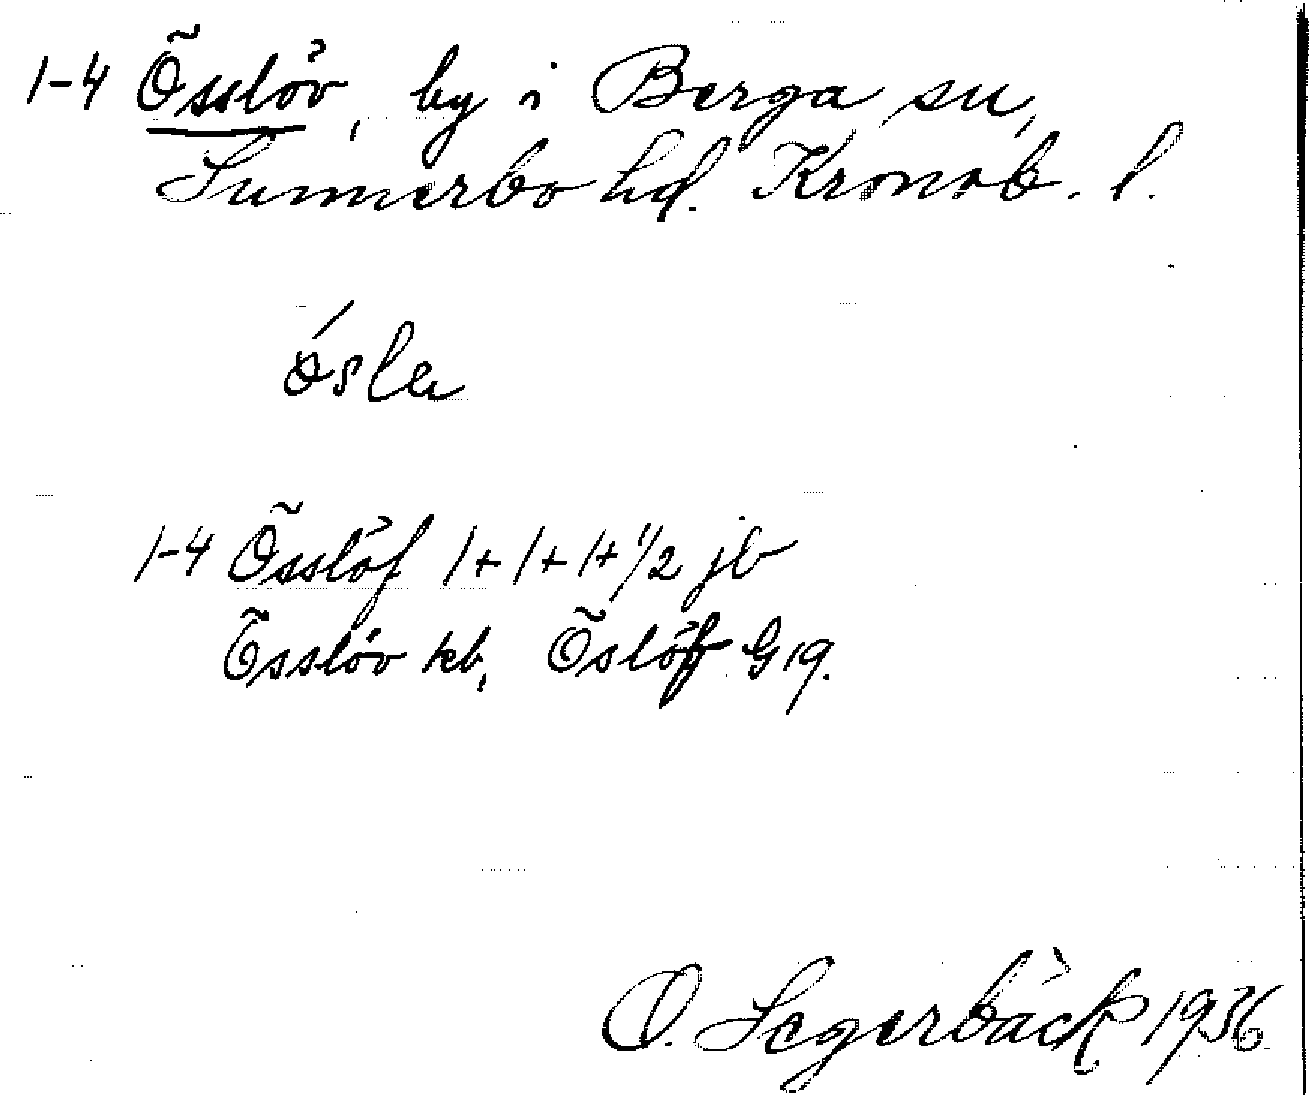 1-4 Össlöv, by i Berga sn,
Sunnerbo hd. Kronob. l.
1-4 Össlöf 1+1+1+1/2 jb
Össlöv kb, Öslöf G19.
O. Segerbäck 1936